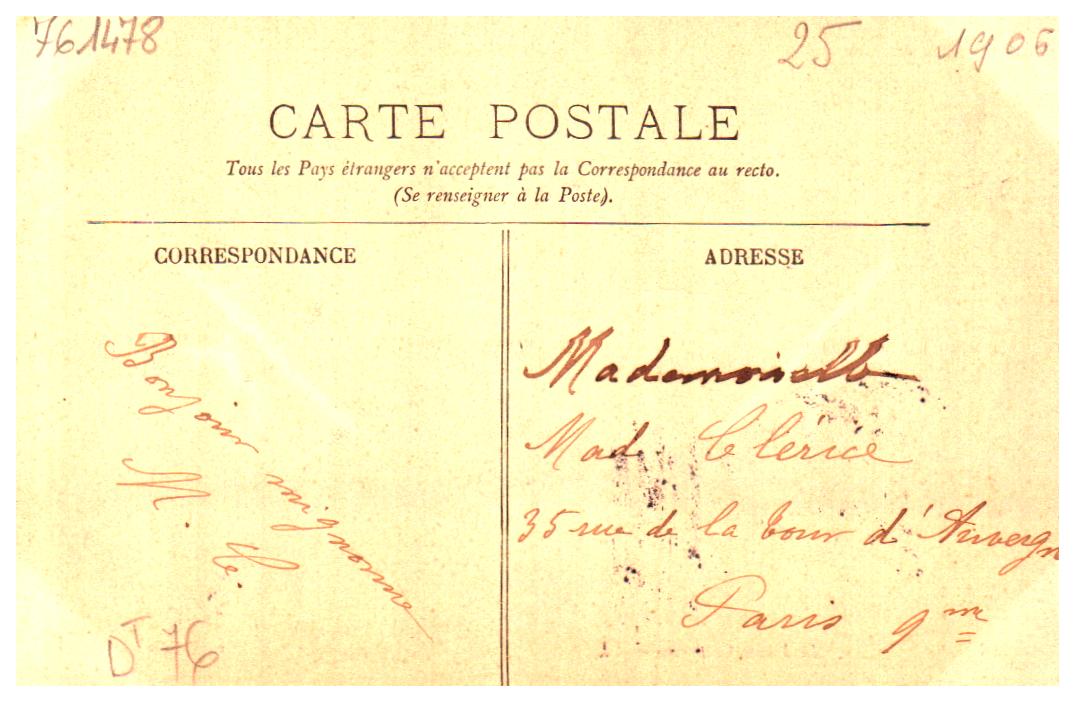 761478
25
1906
CARTE POSTALE
Tous les Pays étrangers n'acceptent pas la Correspondance au recto.
(Se renseigner à la Poste).
CORRESPONDANCE
Bonjour mignonne
M. C.
DT 76
ADRESSE
Mademoiselle
Mad. Clérice
35 rue de la Tour d'Auvergn
Paris 9me